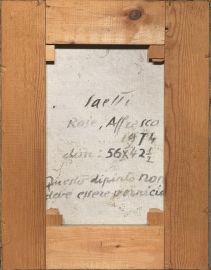 Saetti
Rose, Affresco
1974
dim: 56X42½
Questo dipinto non
deve essere